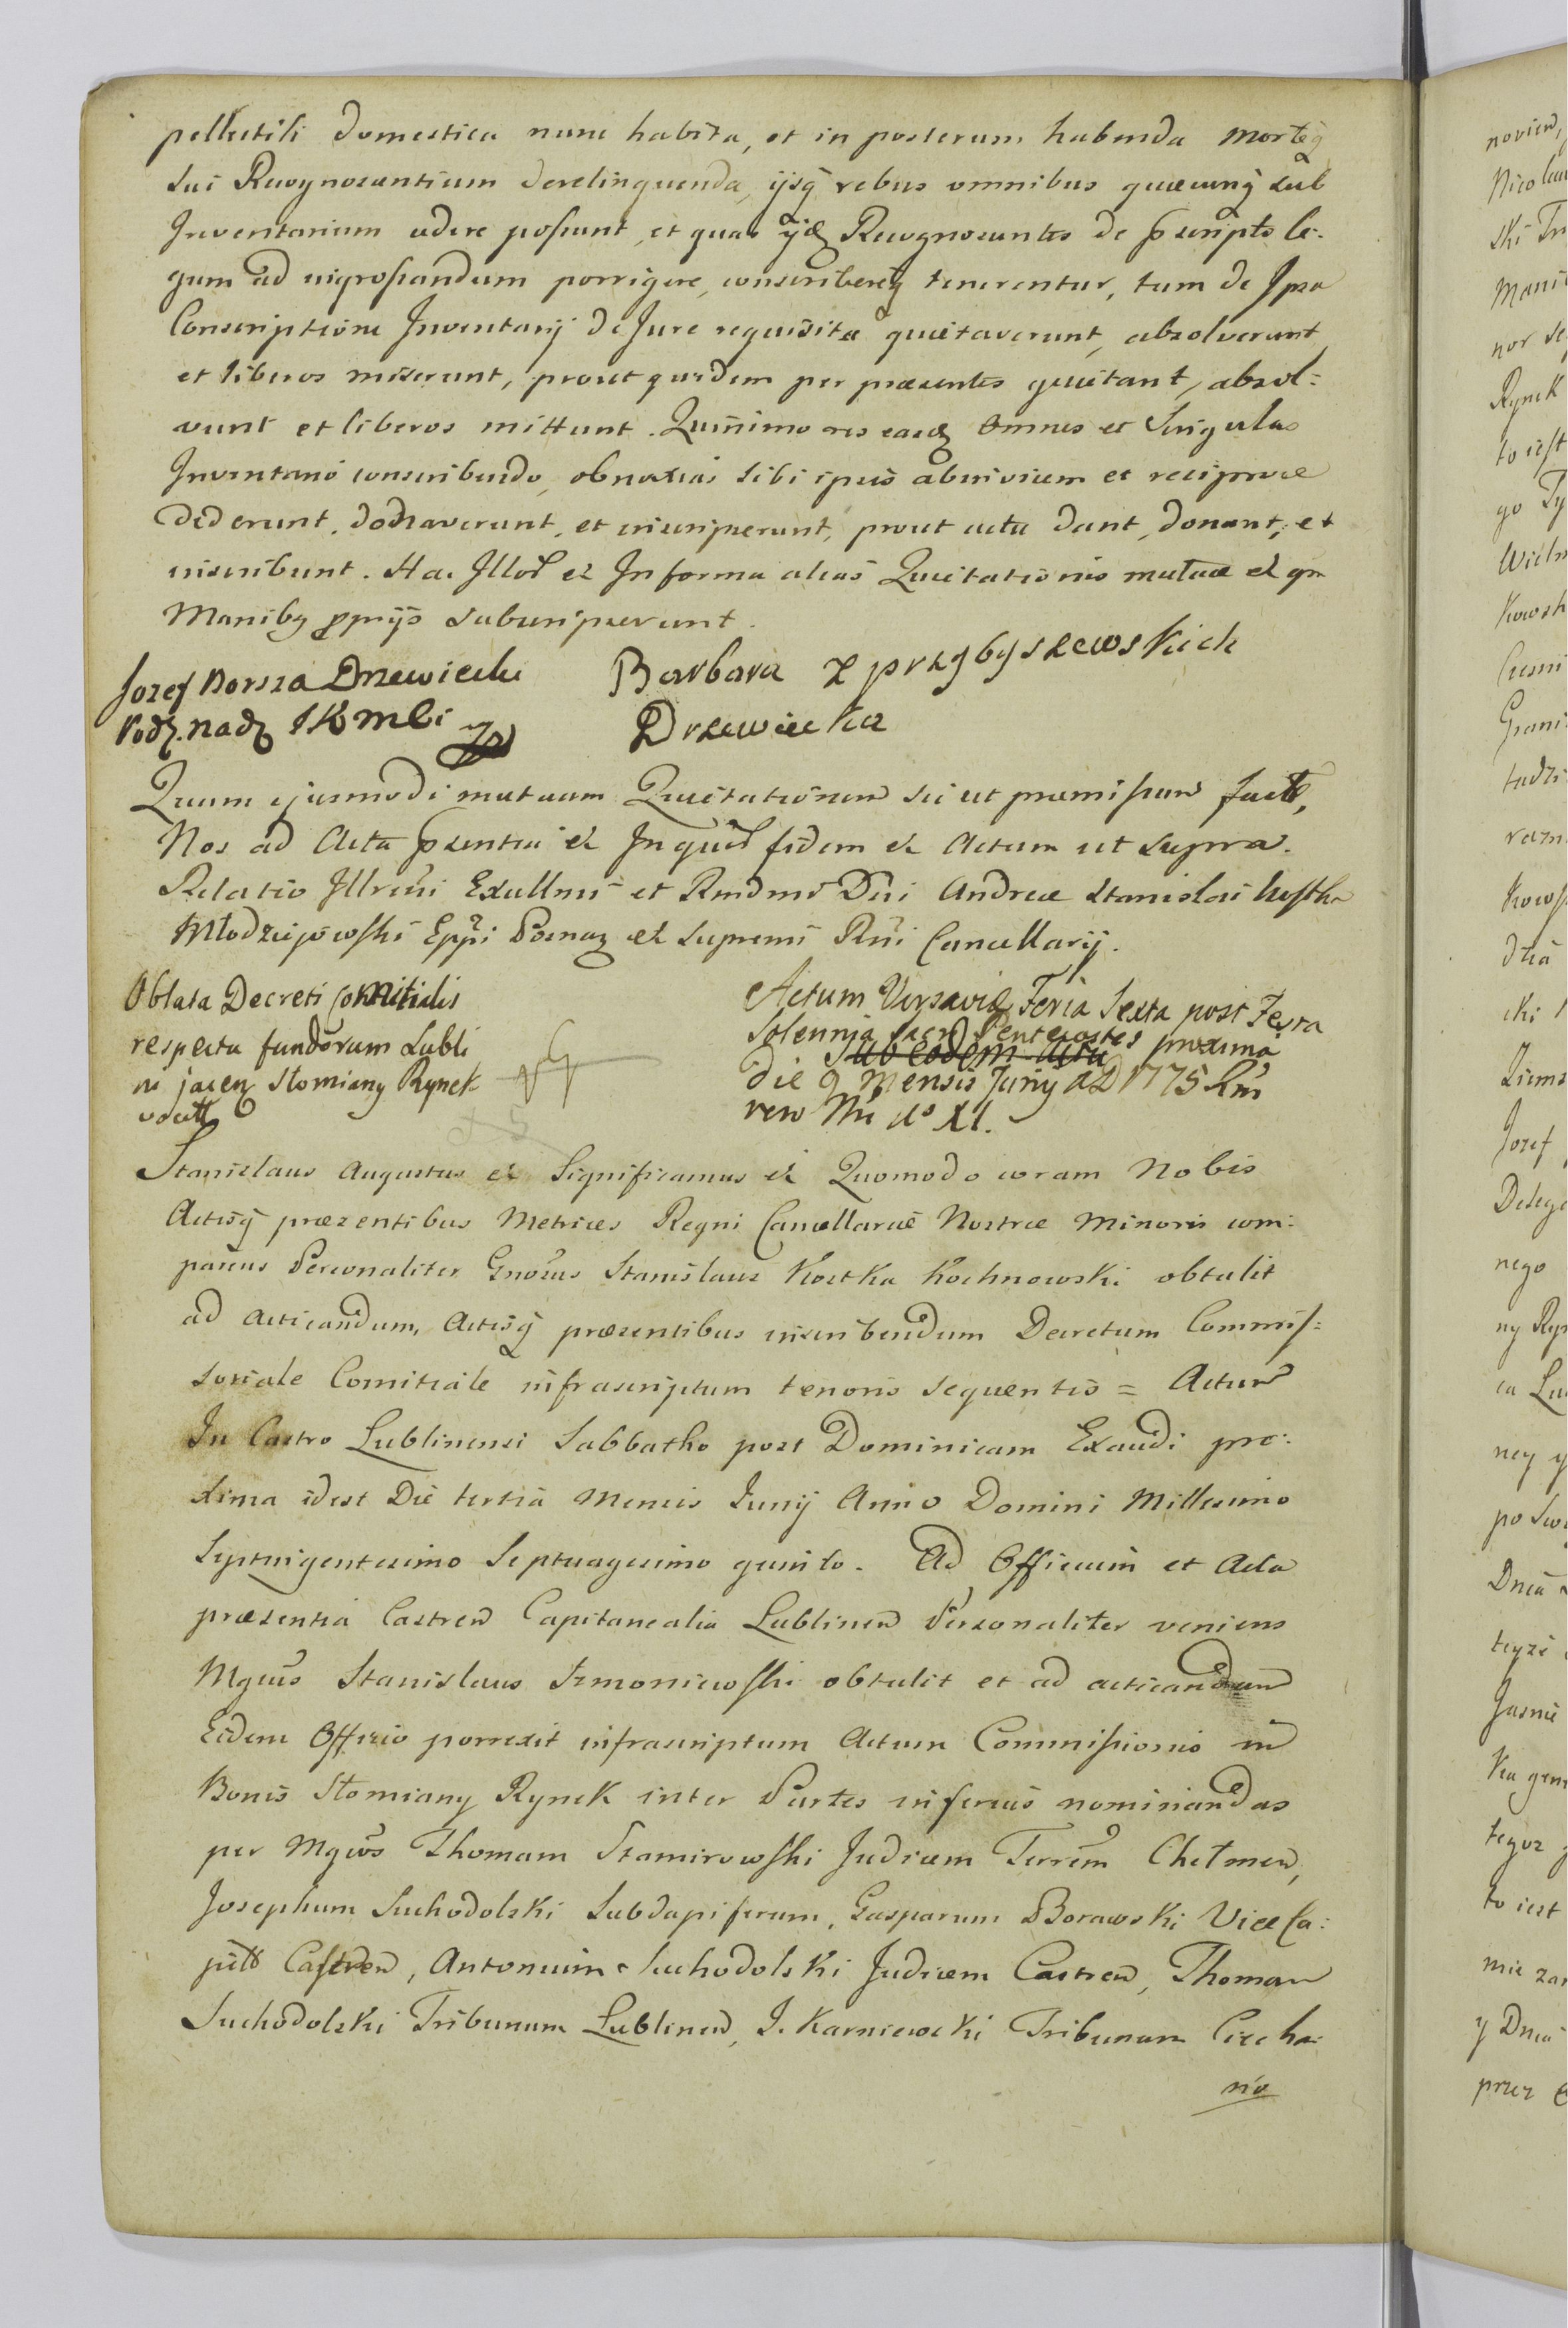 pellectili domestica nunc habita, et in posterum habenda morteq
sui Recognoscentium derelinquenda, ijsq rebus omnibus quæcunq sub
Inventarium cadere possunt, et quas ijdē Recognoscentes de pscripto le-
gum ad ingrossandum porrigere, conscribereq tenerentur, tum de Ipsa
Conscriptione Inventarij de Jure requisita quietaverunt, absolverunt
et liberos miserunt, prout quidem per præsentes quietant, absol=
vunt et liberos mittunt. Quinimo res easdē Omnes et Singulas
Inventario conscribendo, obnoxias sibi ipsis abinvicem et reciproce
dederunt, donaverunt, et inscripserunt, prout actu dant, donant, et
inscribunt. Ha. Illos & In forma alias Quietationis mutuæ et gn
Manibq ppriis subscripserunt.
Jozef Dorsza Drzewiecki
Podz. nadz JKMCi
Barbara z przybyszewskich
Drzewiecka
Quam ejusmodi mutuam Quietationem sic ut præmissum fact,
Nos ad Acta psentia & In quor fidem & Actum ut supra.
Relatio Illrmi Excellmi et Rmdmi Dni Andreæ Stanislai Kostka
Młodziejowski Eppi Posnaz et Supremi Rni Cancellarij.
Oblata Decreti Comitialis
respectu fundorum Lubli
ni jacen Słomiany Rynek
vocatt
Actum Varsaviæ Feria Sexta post Festa
Solennia Sacra Pentecostes proxima
Sub eodem actu
die 9 Mensis Junij AD 1775 Rni
vero Nri Ao XI.
Stanislaus Augustus & Significamus & Quomodo coram Nobis
Actisq præsentibus Metrices Regni Cancellariæ Nostræ Minoris com-
parens Personaliter Gnosus Stanislaus Kostka Kochnowski obtulit
ad acticandum, Actisq præsentibus inscribendum Decretum Commis=
soriale Comitiale infrascriptum tenoris sequentis = Actum
In Castro Lublinensi Sabbatho post Dominicam Exaudi pro-
xima idest Die tertia Mensis Junij Anno Domini Millesimo
Septuigentesimo Septuagesimo quinto. Ad Officium et Acta
præsentia Castren Capitanealia Lublinen Personaliter veniens
Mgcus Stanislaus Szmoniewski obtulit et ad acticandum
Eidem Officio porrexit infrascriptum Actum Commissionis in
Bonis Słomiany Rynek inter Partes inferius nominandas
per Mgcos Thomam Stamirowski Judicem Terrem Chełmen,
Josephum Suchodolski Subdapiferum, Gasparum Borawski Vice Ca-
pitt Castren, Antonium Suchodolski Judicem Castren, Thomam
Suchodolski Tribunum Lublinen, J. Karniewski Tribunum Ciecha-
no